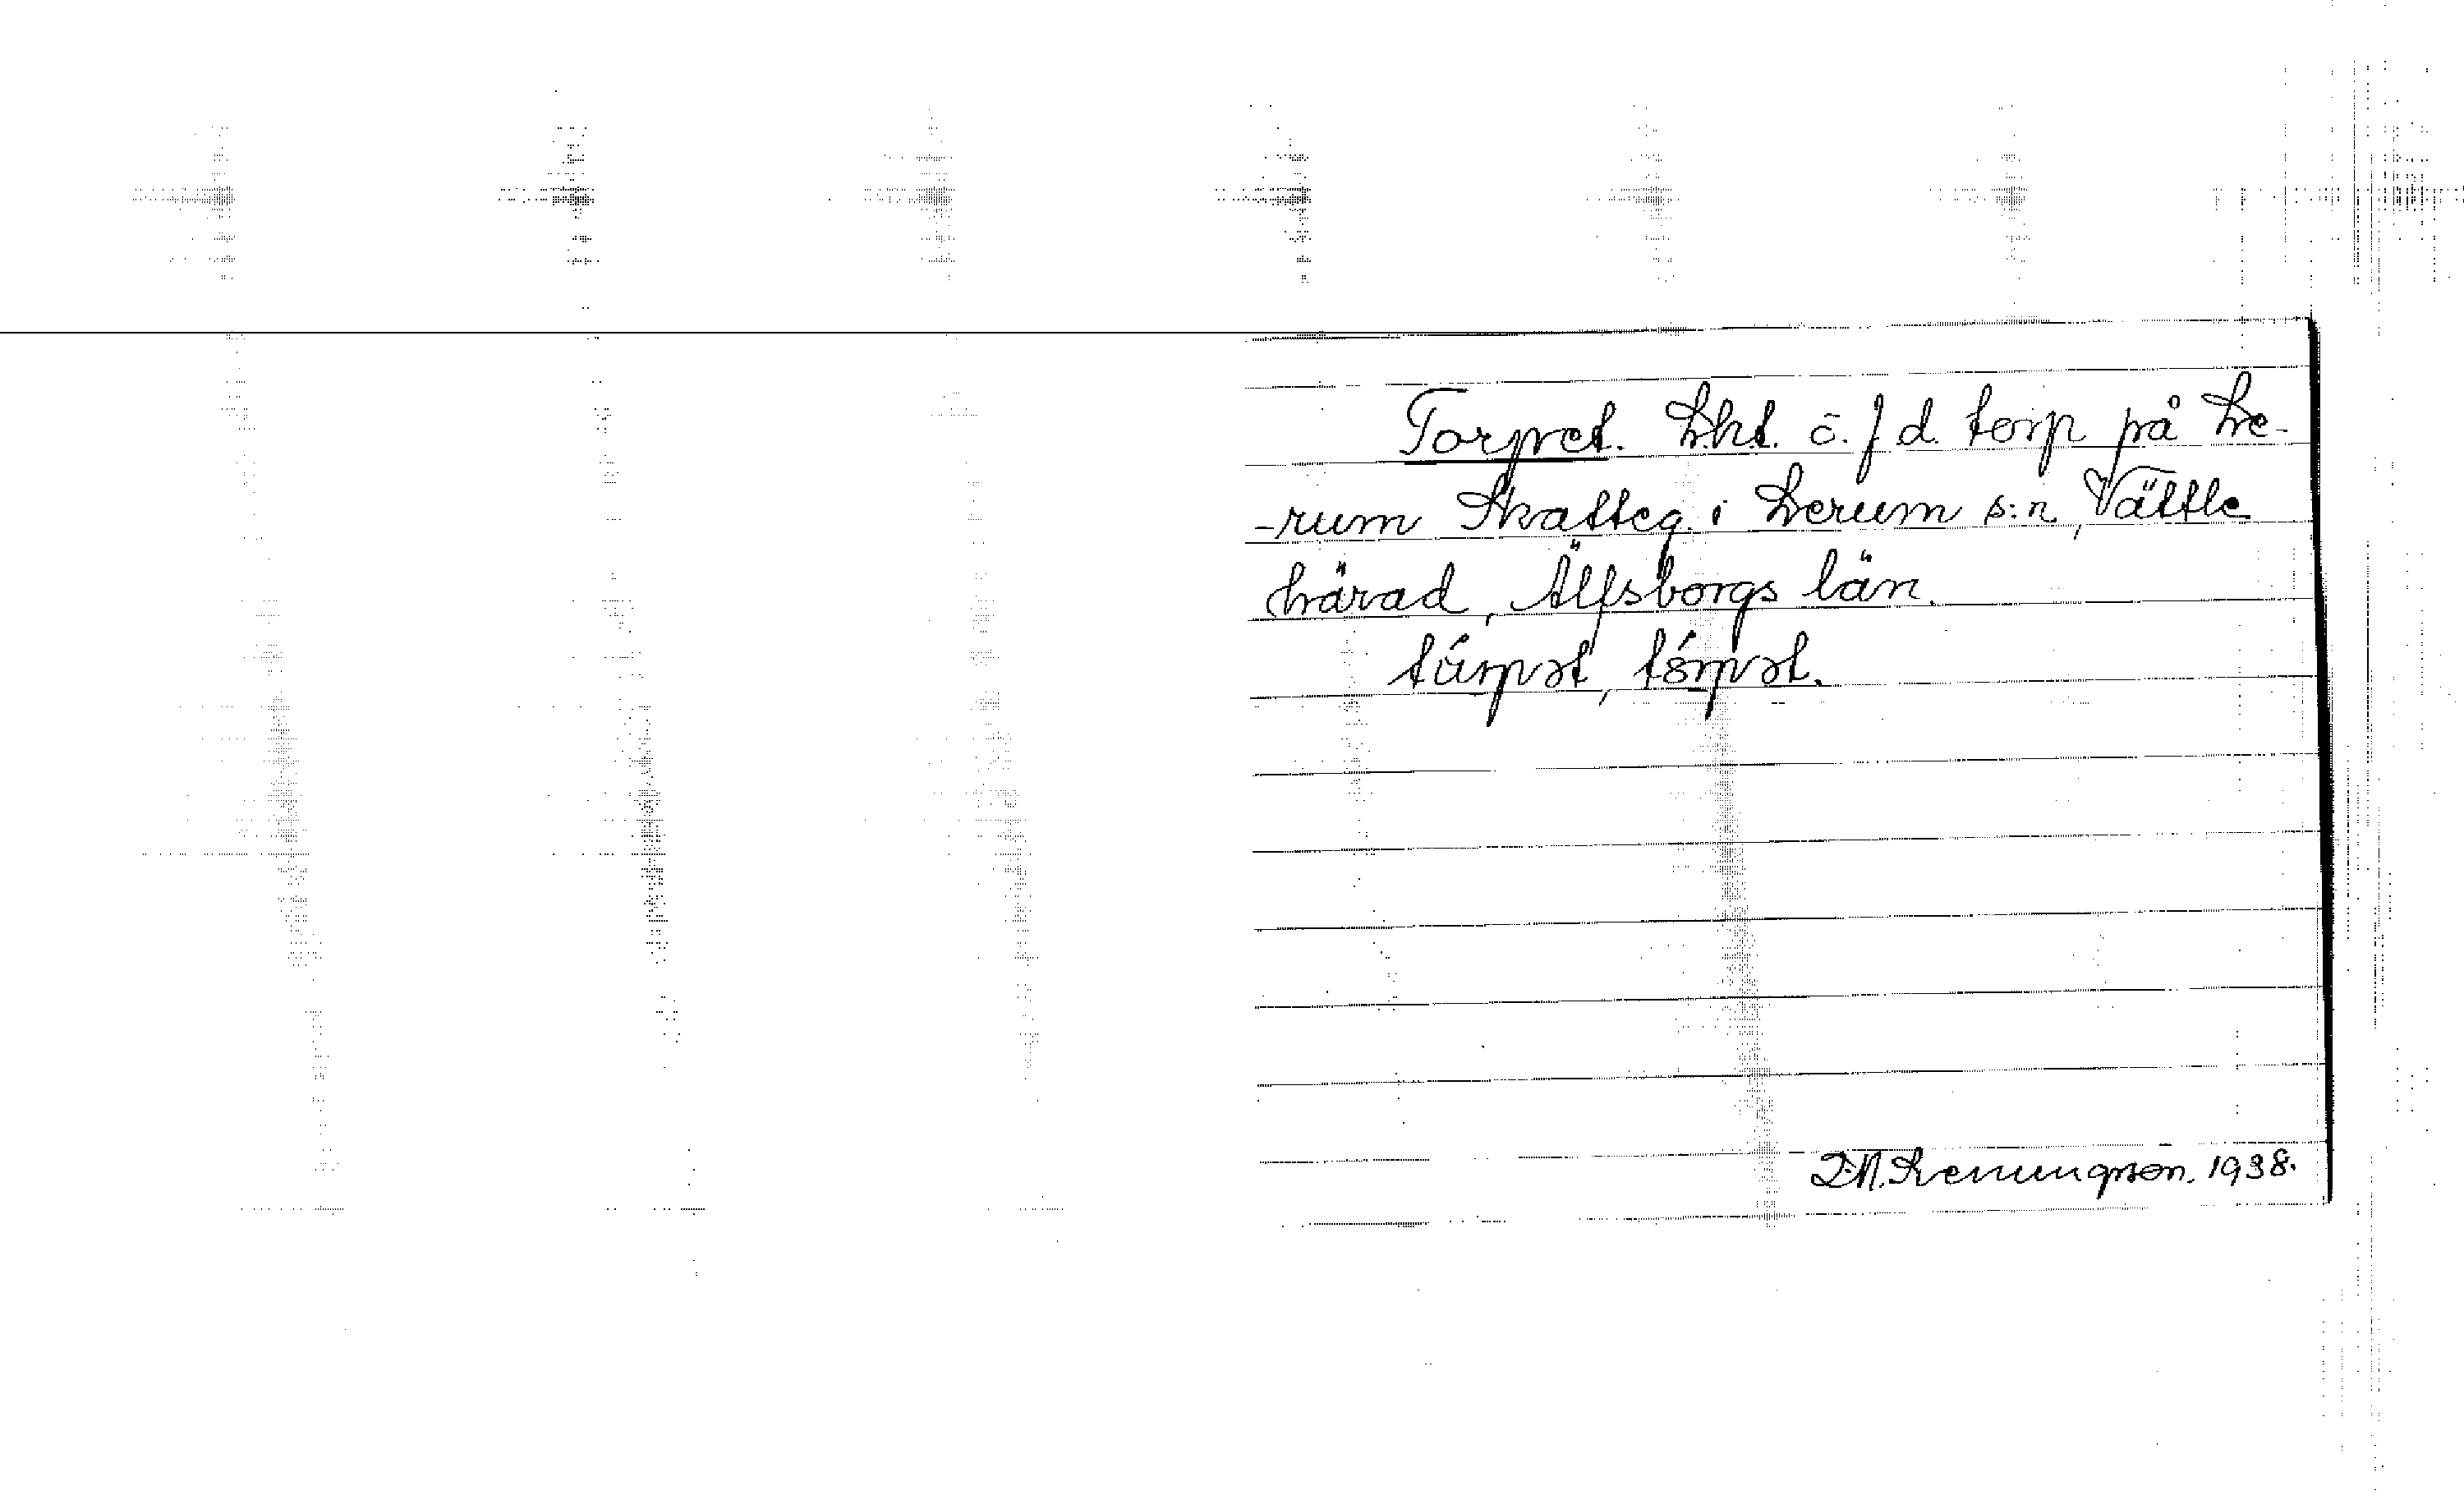 Torpet. Lht. o. f d. torp på Le-
-rum Skatteg. i Lerum s:n, Vättle
härad, Älfsborgs län.
tú̇rpət, tórpət.
1938.